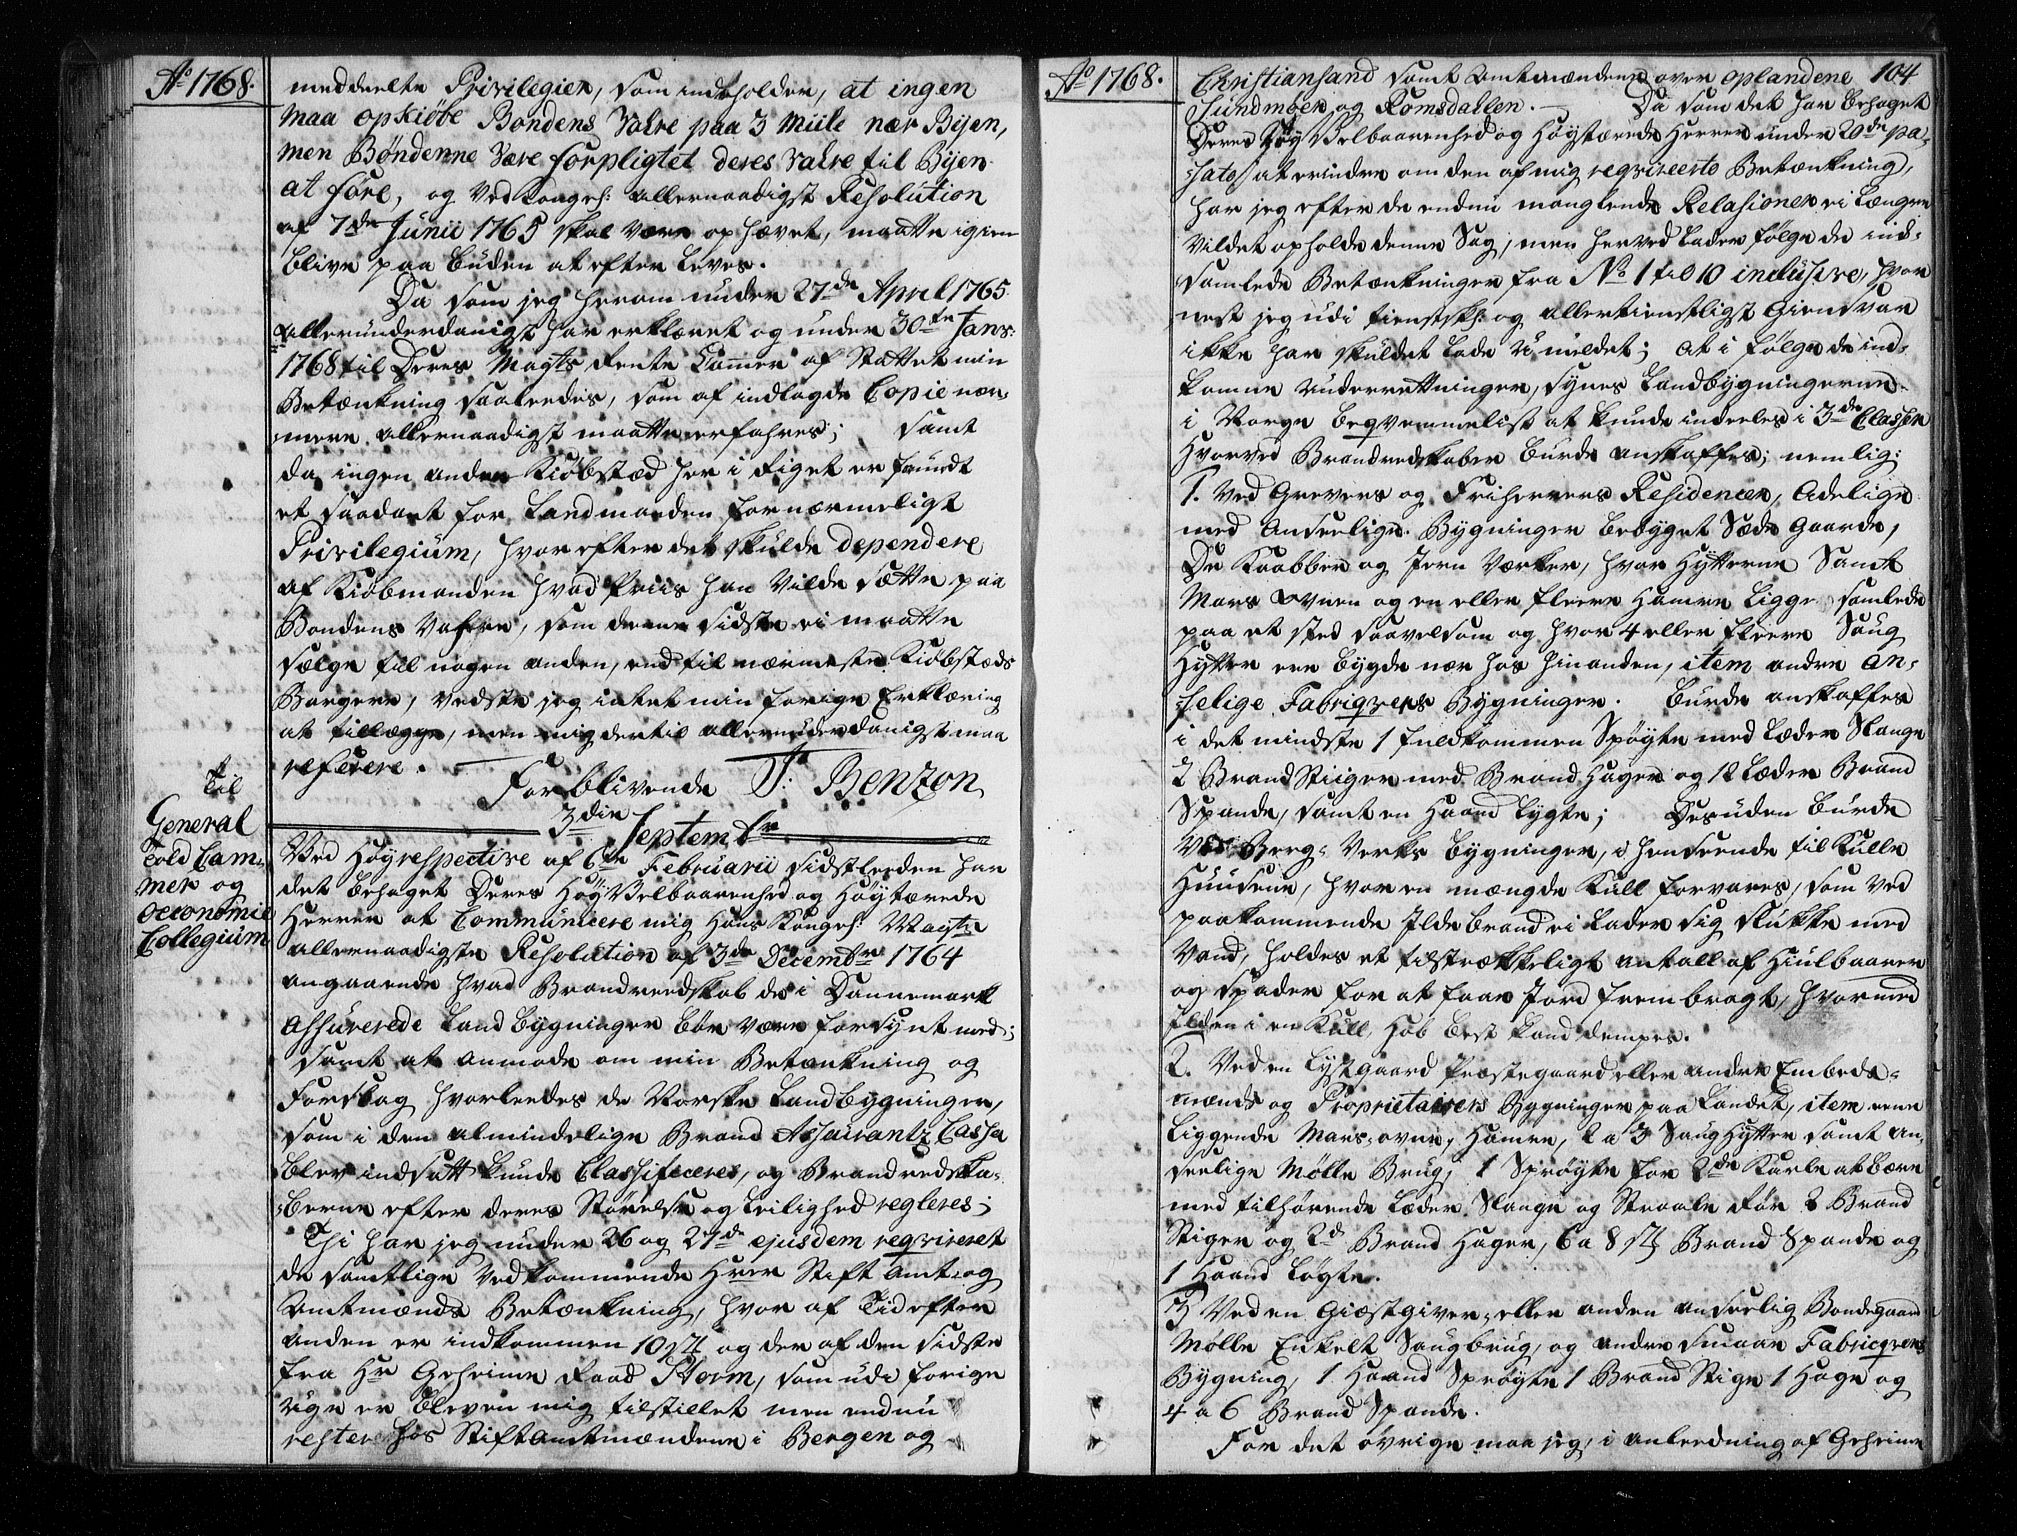 Ao 1768.
meddeelte Privilegier, som indeholder, at ingen
maa opkiøbe Bondens Vahre paa 3 Miile nær Byen,
men Bønderne være forpligtet deres Vahre til Byen
at føre, og ved Kongel: allernaadigst Resolution
af 7de Junii 1765 skal være ophævet, maatte igien
blive paa buden at efterleves.
Da som jeg herom under 27de April 1765
allerunderdanigst har erklæret og under 30te Janr:
1768 til Deres Maysts Rente Cammer af Stattet min
Betænkning saaledes, som af indlagde Copie nær-
mere allernaadigst maatte erfahres; samt
da ingen anden Kiøbstæd her i Riget er fundt
et saadant for Landmanden fornærmeligt
Privilegium, hvorefter det skulde dependere
af Kiøbmanden hvad Priis han vilde sætte paa
Bondens Vahre, som denne sidste ei maatte
sælge til nogen anden, end til nærmeste Kiøbstæds
Borgere, vedste jeg intet min forige Erklæring
at tillægge, men mig dertil allerunderdanigst maa
referere.
Forblivende J: Benzon
3die Septembr
Til
General
Told Cam-
mer og
Oeconomie
Collegium
Ved Høyrespective af 6te Februarii sidstleeden har
det behaget Deres Høy Velbaarenhed og Høytærede
Herrer at Communicere mig Hans Kongel: Mayts
allernaadigste Resolution af 3de Decembr 1764
angaaende hvad Brandreedskab de i Dannemark
Assurerede Land bygninger bør være forsynt med;
samt at anmode om min Betænkning og
Forslag hvorleedes de Norske Landbygninger,
som i den almindelige Brand Assurantz Cassa
blev indsatt kunde Classificeres, og Brandredska-
berne efter deres Størelse og Leilighed regleres;
Thi har jeg under 26 og 27de ejusdem reqvireret
de samtlige Vedkommende Hrer Stift Amt- og
Amtmænds Betænkning, hvor af Tid efter
anden er indkommen 10 st og der af den sidste
fra Hr Geheime Raad Storm, som udi forige
uge er bleven mig tilstillet men endnu
resterer hos Stiftamtmændene i Bergen og
Ao 1768.
104
Christiansand samt Amtmændene over Oplandene
Sundmøer og Romsdallen. Da som det har behaget
Deres Høy Velbaarenhed og Høystærede Herrer under 20de pa-
ssato at erindre om den af mig reqvireerte Betænkning,
har jeg efter de endnu manglende Relasioner ei længere
vildet opholde denne Sag, men herved lader følge de ind-
samlede Betænkninger fra No 1 til 10 inclusive, hvor
nest jeg udi tienstsk: og allertienstligst Giensvar
ikke har skuldet lade Umeldet; at i følge de ind-
komne Underrettninger, synes Landbygningerne
i Norge beqvemmelist at kunde inddeles i 3de Classer
hvorved Brandredskaber burde anskaffes; nemlig:
1. Ved Grevers og Friherrers Residencer, Adelige
med Anseelige Bygninger bebygget Sæde Gaarde,
De Kaabber og Jern Værker, hvor Hytterne Samt
Mars Ovnen og en eller fleere Hamre ligge samlede
paa et sted saavelsom og hvor 4 eller fleere Saug
Hytter ere bygde nær hos hinanden, item andre an-
selige Fabriqvers Bygninger. burde anskaffes
i det mindste 1 fuldkommen Sprøyte med Læder Slange
2 Brand Stiiger med Brand Hager og 12 Læder Brand
Spande, samt en Haand Lygte; Desuden burde
Ved Berg-Verks bygninger, i henseende til Kulle
Huusene, hvor en mængde Kull forvares, som ved
paakommende Ildebrand ei lader sig slukke med
Vand, holdes et tilstrækkeligt antall af Hiulbaarer
og spader for at faae Jord frembragt, hvormed
Ilden i en Kull Hob best kand dempes.
2. Ved en Lystgaard Præstegaard eller andre Embeds-
mænds og Proprietairers Bygninger paa Landet, item eene
liggende Mars-ovne, Hamre, 2 a 3 Saug Hytter samt an-
seelige Mølle Brug, 1 Sprøyte for 2de Karle at bære
med tilhørende Læder Slange og Straale Rør 2 Brand
Stiger og 2de Brand Hager, 6 a 8 st Brand Spande og
1 Haand Løgte.
3. Ved en Giæstgiver- eller anden anseelig Bondegaard
Mølle Enkelt Saugbrug, og andre smaae Fabriqvers
Bygning, 1 Haand Sprøyte 1 Brand Stige 1 Hage og
4 a 6 Brand Spande.
For det øvrige maa jeg, i anleedning af Geheime